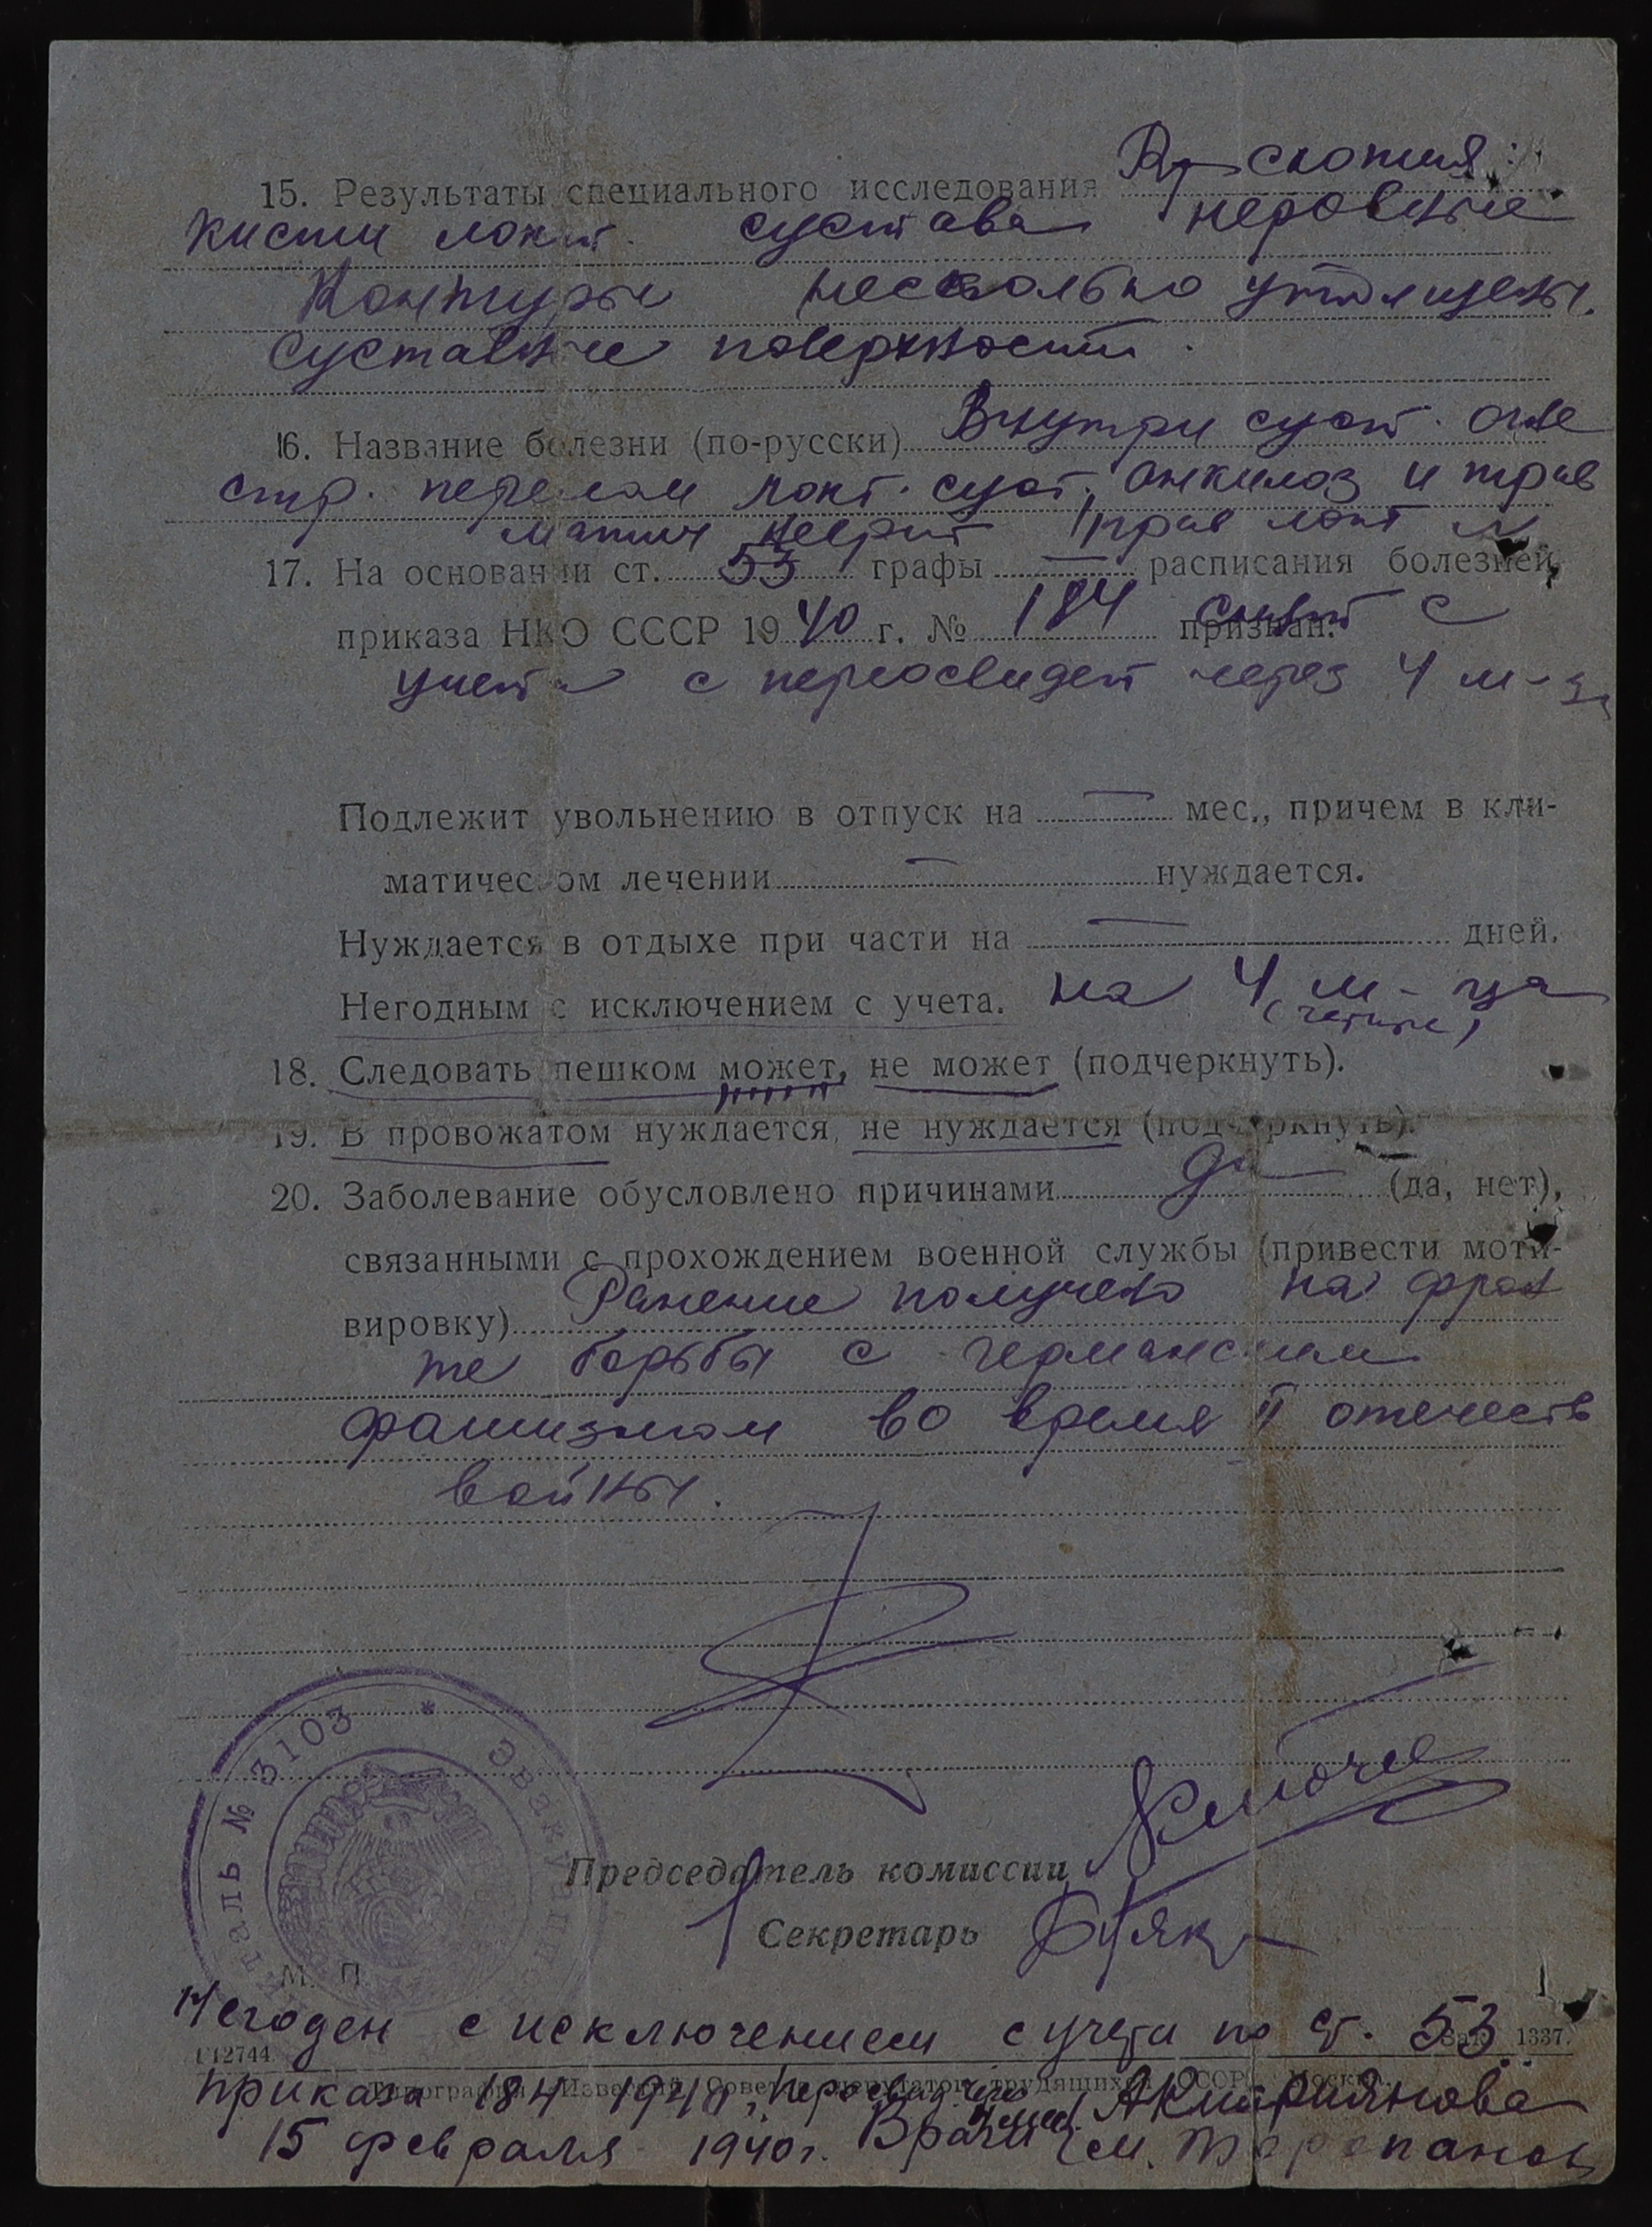 15. Результаты специального исследования R-скопия:
кисти локт. сустава неровные
Контуры несколько утолщены.
суставные поверхности.
16. Название болезни (по-русски) Внутри суст. огне
стр. перелом локт. суст., анкилоз и трав
матич неврит прав локт
17. На основании ст. 53 графы — расписания болезней,
приказа НКО СССР 1940 г. № 184 признан: снят с
учета с переосвидет через 4 м-ца
Подлежит увольнению в отпуск на — мес., причем в кли-
матическом лечении — нуждается.
Нуждается в отдыхе при части на — дней.
Негодным с исключением с учета. на 4 м-ца
(четыре)
18. Следовать пешком может, не может (подчеркнуть).
19. В провожатом нуждается, не нуждается (подчеркнуть).
20. Заболевание обусловлено причинами да (да, нет),
связанными с прохождением военной службы (привести моти-
вировку) Ранение получено на фрон
те борьбы с германским
фашизмом во время II отечеств
войны.
* Эвакуацион таль № 3103
Председатель комиссии
Секретарь
М. П.
Негоден с исключением с учета по ст. 53
Г12744. Зак. 1337.
Типография „Известий Советов депутатов трудящихся СССР“, Москва.
приказа 184 1940,
15 февраля 1940 г. Врачи